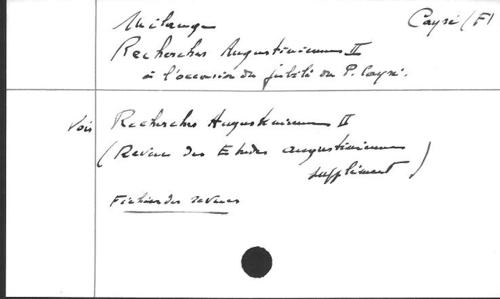 Mélange Cayré (F)
Recherches Augustiniennes II
à l'occasion du jubilé du P. Cayré.
Voir Recherches Augustiniennes II
(Revue des Etudes augustiniennes
supplément)
Fichier des revues